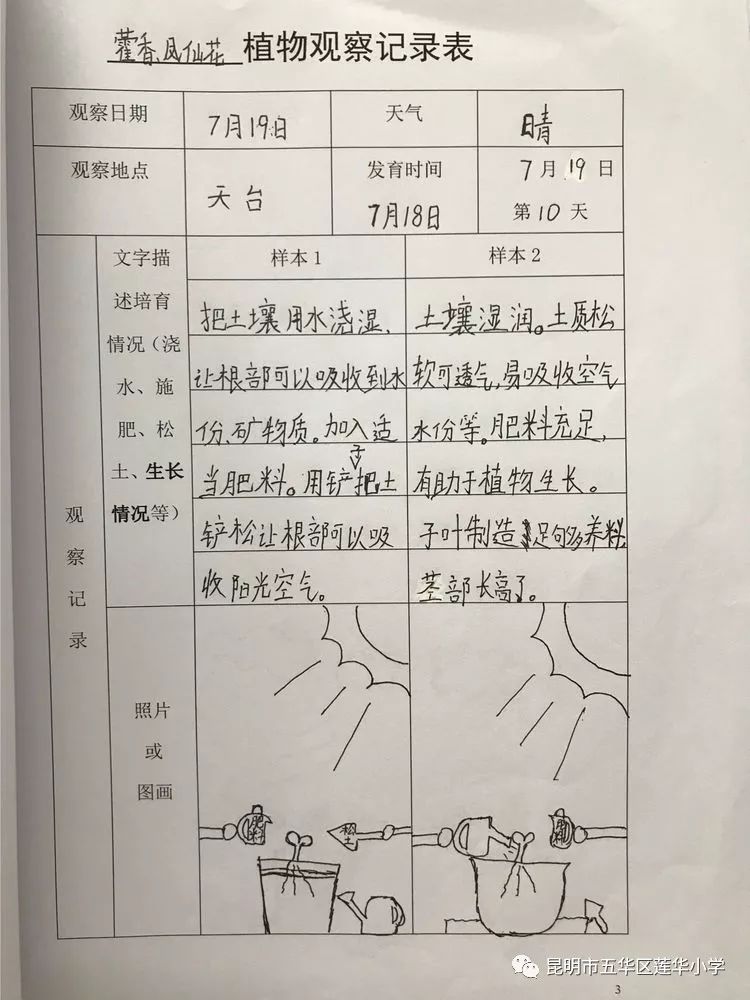 藿香、凤仙花 植物观察记录表
观察日期 7月19日 天气 晴
观察地点 天台 发育时间 7月18日 7月19日
第10天
观察记录
文字描
述培育
情况（浇
水、施
肥、松
土、生长
情况等）
样本1
把土壤用水浇湿，
让根部可以吸收到水
份、矿物质。加入适
当肥料。用铲子把土
铲松让根部可以吸
收阳光空气。
样本2
土壤湿润。土质松
软可透气，易吸收空气
水份等。肥料充足，
有助于植物生长。
子叶制造足够多养料，
茎部长高了。
照片
或
图画
肥料
松土
肥料
昆明市五华区莲华小学
3